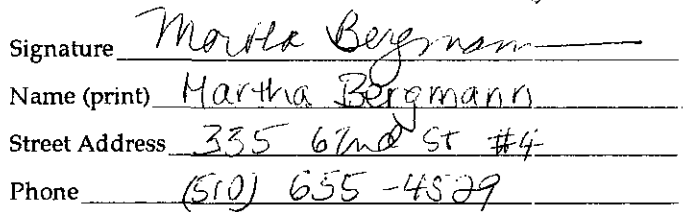 Signature Martha Bergmann
Name (print) Martha Bergmann
Street Address 335 62nd St #4
Phone (510) 655-4529